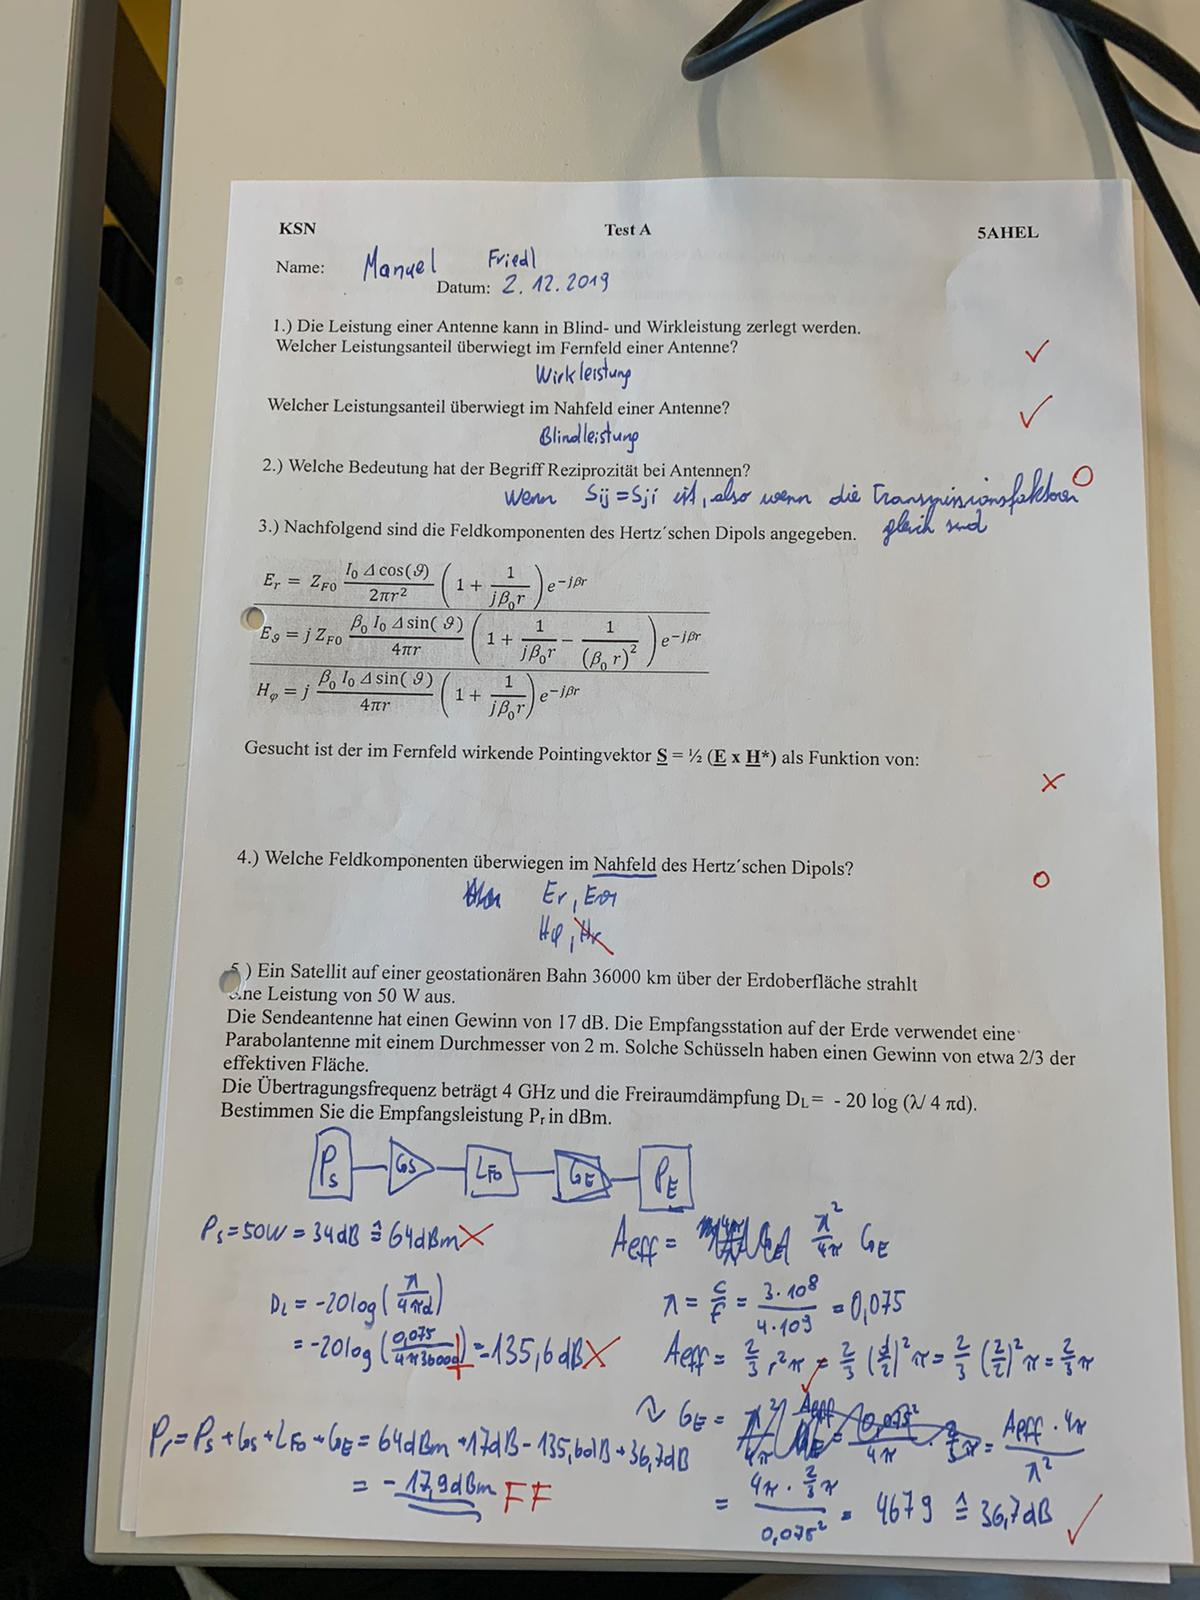 KSN Test A 5AHEL
Name: Manuel Friedl
Datum: 2.12.2019
1.) Die Leistung einer Antenne kann in Blind- und Wirkleistung zerlegt werden.
Welcher Leistungsanteil überwiegt im Fernfeld einer Antenne?
Wirkleistung
Welcher Leistungsanteil überwiegt im Nahfeld einer Antenne?
Blindleistung
2.) Welche Bedeutung hat der Begriff Reziprozität bei Antennen?
Wenn Sij = Sji ist, also wenn die Transmissionsfaktoren
gleich sind
3.) Nachfolgend sind die Feldkomponenten des Hertz´schen Dipols angegeben.
E_r = Z_F0 I_0 Δ cos(ϑ) / 2πr² (1 + 1/jβ_0r) e^−jβr
E_ϑ = j Z_F0 β_0 I_0 Δ sin(ϑ) / 4πr (1 + 1/jβ_0r − 1/(β_0 r)²) e^−jβr
H_φ = j β_0 I_0 Δ sin(ϑ) / 4πr (1 + 1/jβ_0r) e^−jβr
Gesucht ist der im Fernfeld wirkende Pointingvektor S = ½ (E x H*) als Funktion von:
4.) Welche Feldkomponenten überwiegen im Nahfeld des Hertz´schen Dipols?
Er, Eϑ
Hφ, Hr
5.) Ein Satellit auf einer geostationären Bahn 36000 km über der Erdoberfläche strahlt
eine Leistung von 50 W aus.
Die Sendeantenne hat einen Gewinn von 17 dB. Die Empfangsstation auf der Erde verwendet eine
Parabolantenne mit einem Durchmesser von 2 m. Solche Schüsseln haben einen Gewinn von etwa 2/3 der
effektiven Fläche.
Die Übertragungsfrequenz beträgt 4 GHz und die Freiraumdämpfung D_L = - 20 log (λ/ 4 πd).
Bestimmen Sie die Empfangsleistung P_r in dBm.
P_S G_S L_F0 G_E P_E
P_S = 50W = 34dB ≙ 64dBm
Aeff = λ²/4π G_E
D_L = -20log(λ/4πd)
λ = c/f = 3·10^8 / 4·10^9 = 0,075
= -20log(0,075/4π36000) = 135,6dB
Aeff = 2/3 r²π = 2/3 (d/2)² π = 2/3 (2/2)² π = 2/3 π
G_E = Aeff · 4π / λ²
Pr = P_S + G_S + L_F0 + G_E = 64dBm + 17dB - 135,6dB + 36,7dB
= -17,9dBm FF
= 4π · 2/3 π / 0,075² = 4679 ≙ 36,7dB